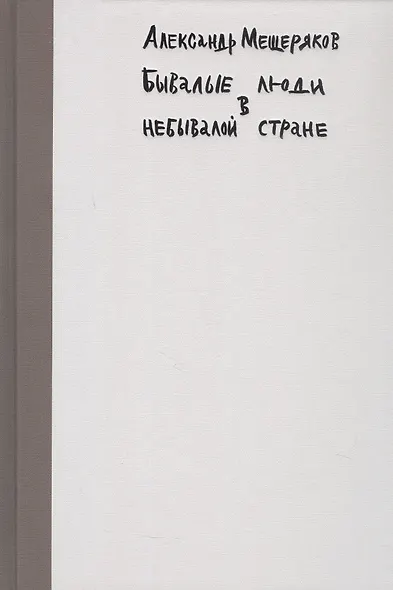 Александр Мещеряков
Бывалые люди
в
небывалой стране